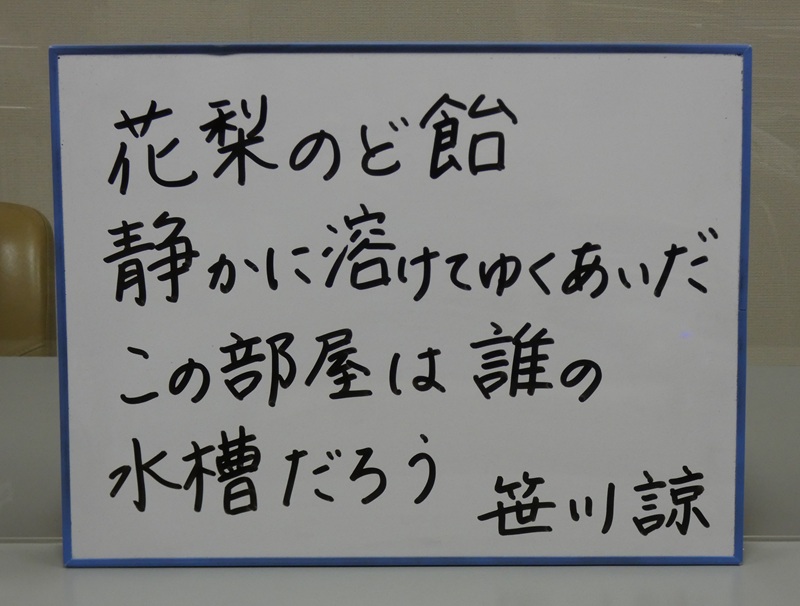 花梨のど飴
静かに溶けてゆくあいだ
この部屋は誰の
水槽だろう
笹川諒